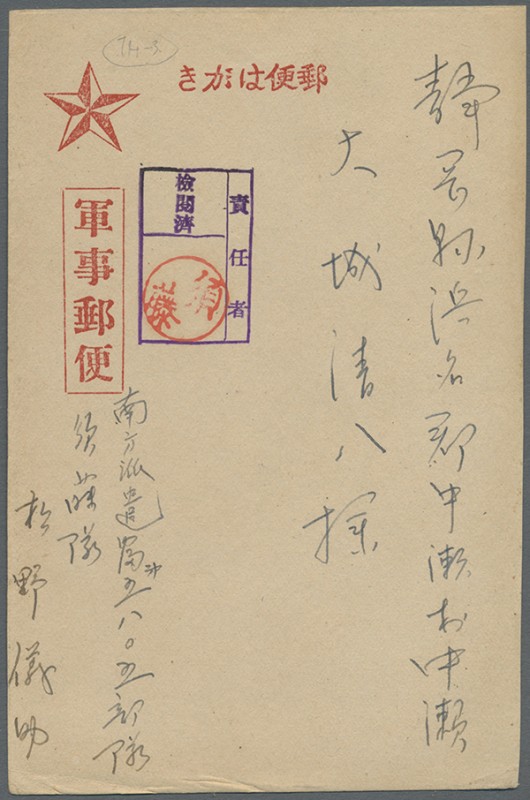 静岡縣浜名郡中瀬村中瀬
大城清八様
郵便はがき
軍事郵便
責任者
檢閲濟
須藤
南方派遣富
五八〇五部隊
須藤隊
松野儀助